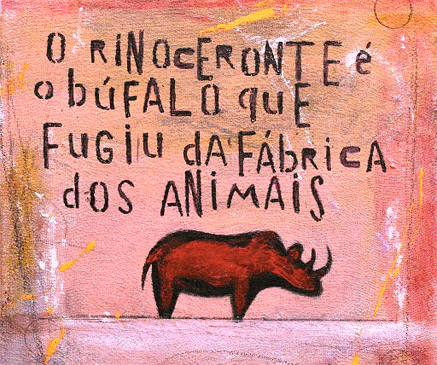 O RINOCERONTE é
o búFALO quE
FUGiU dA FÁBRiCA
dOS ANiMAiS